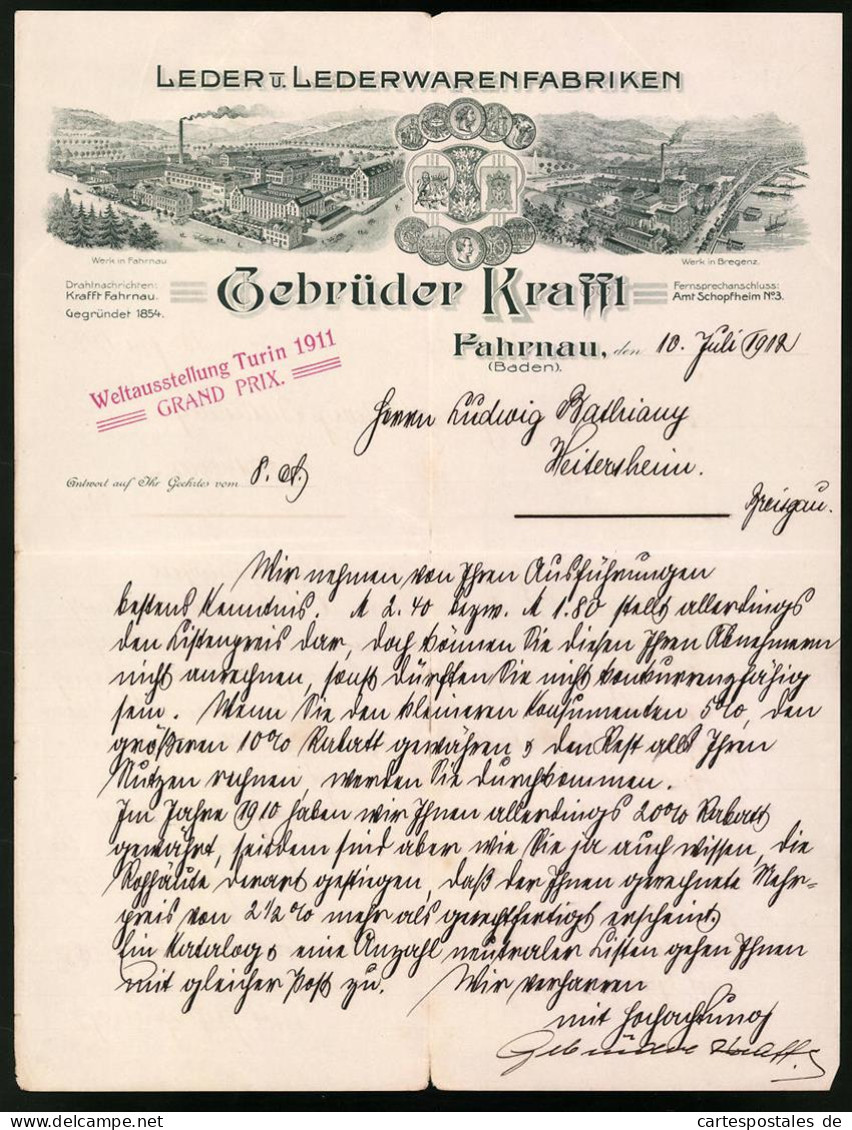 LEDER U. LEDERWARENFABRIKEN
Werk in Fahrnau.
Werk in Bregenz.
Drahtnachrichten:
Krafft Fahrnau.
Gegründet 1854.
Gebrüder Krafft
Fernsprechanschluss:
Amt Schopfheim No 3.
Weltausstellung Turin 1911
GRAND PRIX.
Fahrnau, den 10. Juli 1912
(Baden).
Herrn Ludwig Bathiany
Heitersheim.
Breisgau.
Antwort auf Ihr Geehrtes vom 8. ct.
Wir nehmen von Ihren Ausführungen
bestens Kenntnis. M 2.40 bezw. M 1.80 stellt allerdings
den Listenpreis dar, doch können Sie diesen Ihren Abnehmern
nicht anrechnen, sonst dürften Sie nicht konkurrenzfähig
sein. Wenn Sie den kleineren Konsumenten 5%, den
größeren 10% Rabatt gewähren & den Rest als Ihren
Nutzen rechnen, werden Sie durchkommen.
Im Jahre 1910 haben wir Ihnen allerdings 20% Rabatt
gewährt, seitdem sind aber wie Sie ja auch wissen, die
Rohhäute derart gestiegen, daß der Ihnen gerechnete Mehr-
preis von 2½% mehr als gerechtfertigt erscheint.
Ein Katalog & eine Anzahl neutraler Listen gehen Ihnen
mit gleicher Post zu. Wir verharren
mit Hochachtung
Gebrüder Krafft
cartespostales de